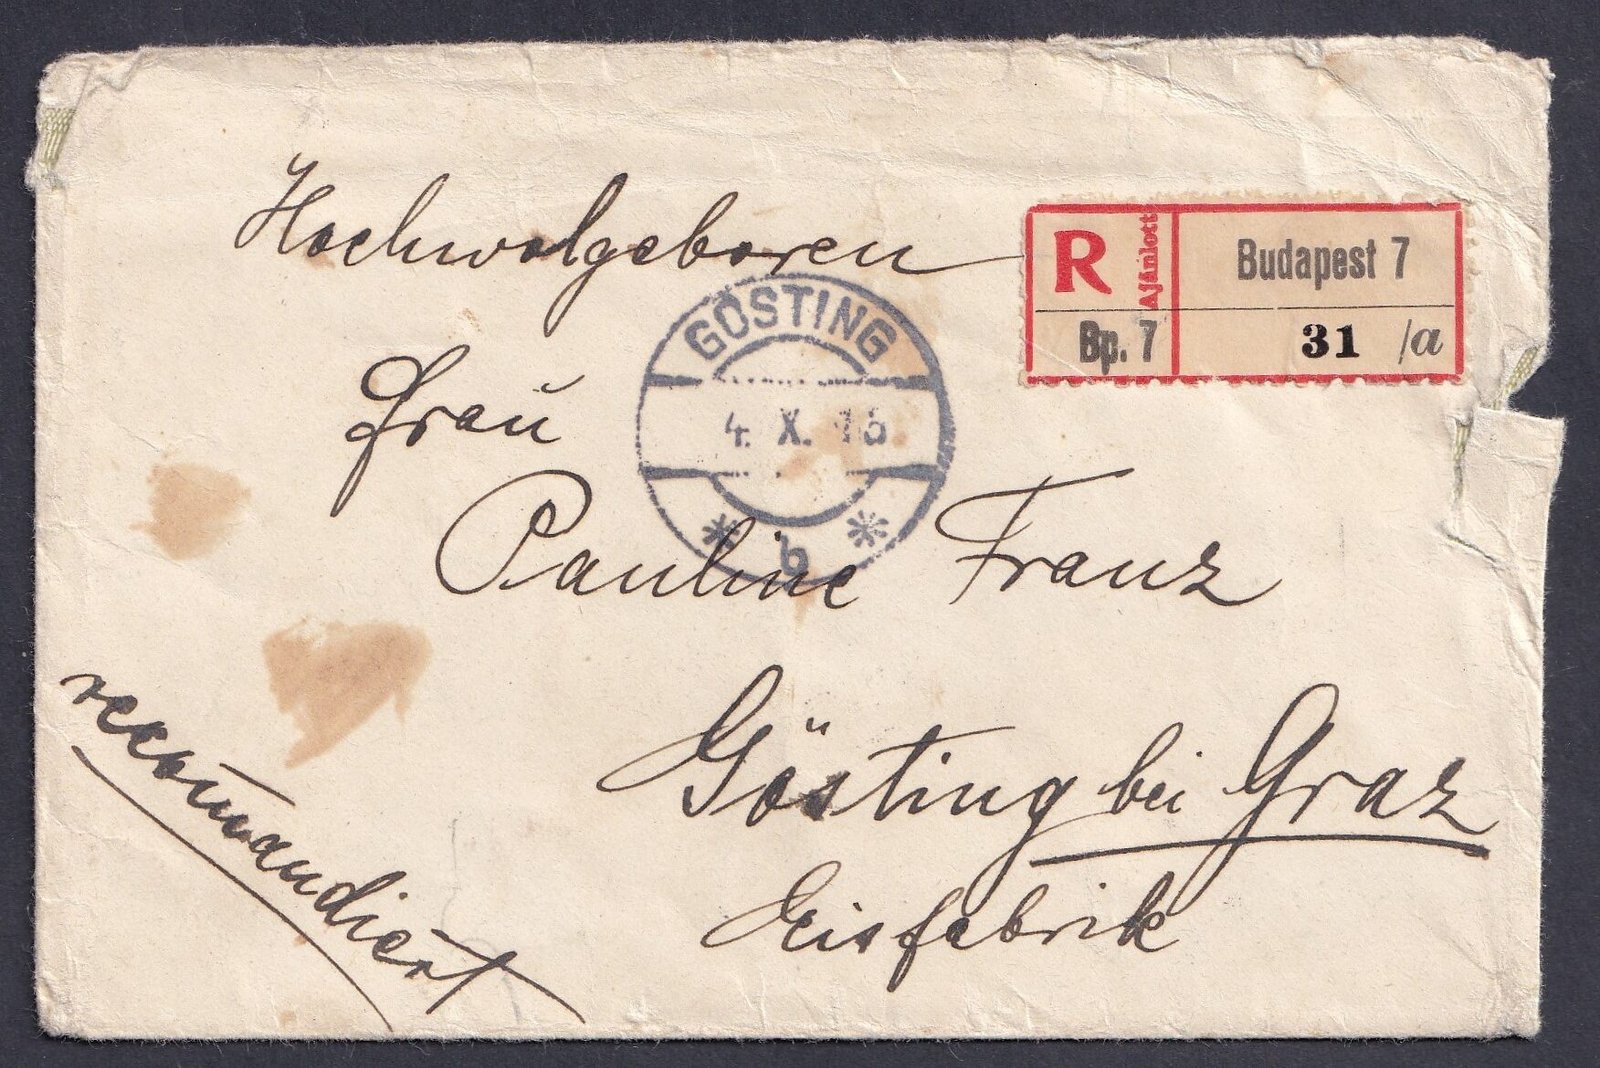 Hochwolgeboren
R Ajánlott Budapest 7
Bp. 7 31 /a
GÖSTING
4. X.
b
Fraŭ
Pauline Franz
Gösting bei Graz
Eisfabrik
recom̄andiert